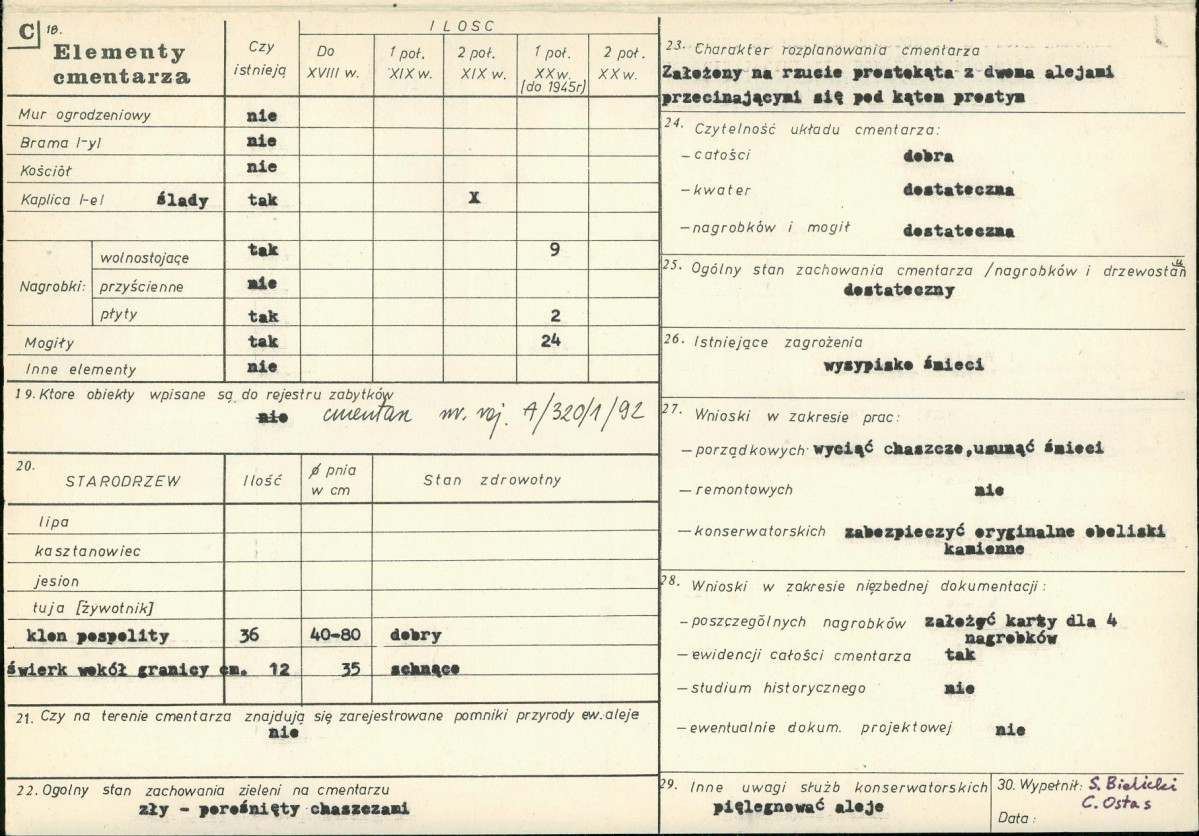 C 18.
Elementy cmentarza
Czy istnieją
ILOŚĆ
Do XVIII w.
1 poł. XIX w.
2 poł. XIX w.
1 poł. XX w. [do 1945r]
2 poł. XX w.
Mur ogrodzeniowy nie
Brama /-y/ nie
Kościół nie
Kaplica /-e/ ślady tak X
Nagrobki:
wolnostojące tak 9
przyścienne nie
płyty tak 2
Mogiły tak 24
Inne elementy nie
19. Ktore obiekty wpisane są do rejestru zabytków
nie cmentarz nr. rej. A/320/1/92
20.
STARODRZEW Ilość ϕ pnia w cm Stan zdrowotny
lipa
kasztanowiec
jesion
tuja [żywotnik]
klon pospolity 36 40-80 dobry
świerk wokół granicy cm. 12 35 schnące
21. Czy na terenie cmentarza znajdują się zarejestrowane pomniki przyrody ew. aleje
nie
22. Ogolny stan zachowania zieleni na cmentarzu
zły - porośnięty chaszczami
23. Charakter rozplanowania cmentarza
Założony na rzucie prostokąta z dwoma alejami
przecinającymi się pod kątem prostym
24. Czytelność układu cmentarza:
- całości dobra
- kwater dostateczna
- nagrobków i mogił dostateczna
25. Ogólny stan zachowania cmentarza /nagrobków i drzewostanu
dostateczny
26. Istniejące zagrożenia
wysypisko śmieci
27. Wnioski w zakresie prac:
- porządkowych wyciąć chaszcze, usunąć śmieci
- remontowych nie
- konserwatorskich zabezpieczyć oryginalne obeliski
kamienne
28. Wnioski w zakresie niezbednej dokumentacji:
- poszczególnych nagrobków założyć karty dla 4
nagrobków
- ewidencji całości cmentarza tak
- studium historycznego nie
- ewentualnie dokum. projektowej nie
29. Inne uwagi służb konserwatorskich
pielęgnować aleje
30. Wypełnił: S. Bielicki
C. Ostas
Data: